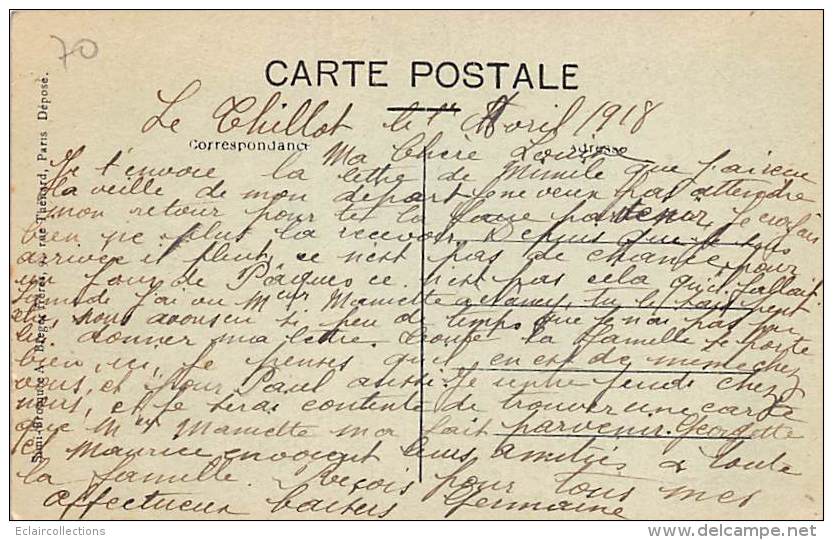 70
CARTE POSTALE
Le Thillot le 1er Avril 1918
Correspondance Adresse
Ma Chère Louise
Je t'envoie la lettre de Mimile que j'ai reçue
la veille de mon départ ne veux pas attendre
mon retour pour te la faire parvenir, Je croyais
bien ne plus la recevoir. Depuis que je suis
arrivée il pleut, ce n'est pas de chance pour
un jour de Pâques ce n'est pas cela qu'il fallait.
Samedi j'ai vu Mme Mamette à Nancy, tu le sais peut
nous avons eu si peu de temps que je n'ai pas pu
lui donner ma lettre. Toute la famille se porte
bien, ici, Je penses qu'il en est de même chez
vous, et pour Paul aussi. Je rentre jeudi chez
nous, et je serai contente de trouver une carte
que Mme Mamette m'a fait parvenir. Georgette
et Maurice envoient leurs amitiés à toute
la famille. Reçois pour tous mes
affectueux baisers Germaine
Simi-Bromure A. Breger Frères, 9, rue Thénard, Paris Déposé.
Eclaircollections